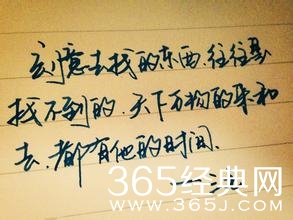 刻意去找的东西.往往是
找不到的.天下万物的来和
去.都有他的时间.
365经典网
365JZ.COM